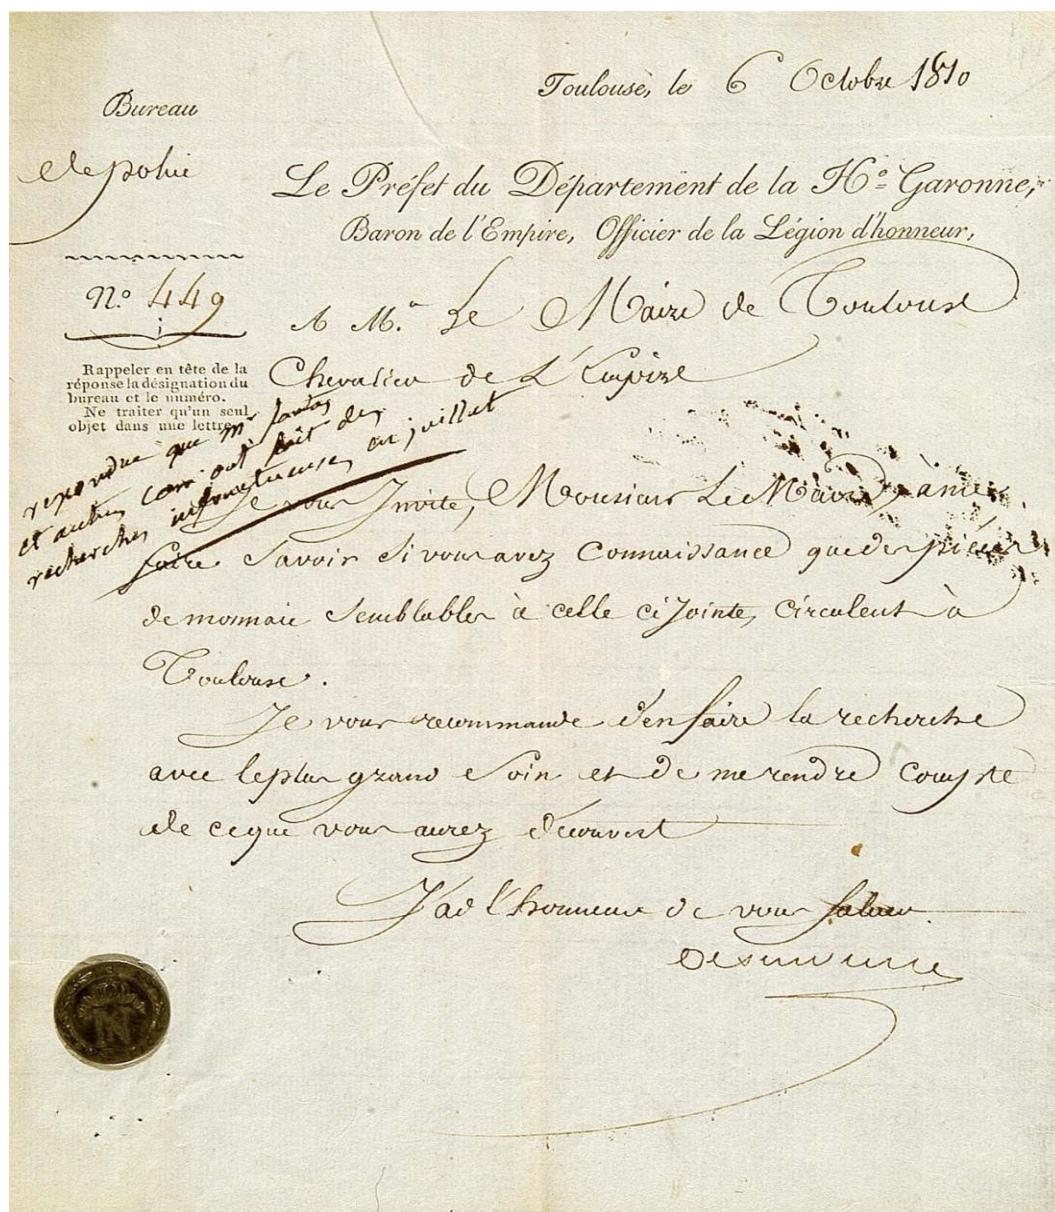 Toulouse, le 6 Octobre 1810
Bureau
de police
Le Préfet du Département de la H.e Garonne,
Baron de l'Empire, Officier de la Légion d'honneur,
N.o 449
A M.r Le Maire de Toulouse
Chevalier de L'Empire
Rappeler en tête de la
réponse la désignation du
bureau et le numéro.
Ne traiter qu'un seul
objet dans une lettre.
repondre que Mr
et autres com ont fait des
recherches infructueuses en juillet
Je vous Invite, Monsieur Le Maire, à me
faire Savoir Si vous avez Connaissance que des pièces
de monnaie Semblables à celle ci Jointe, Circulent à
Toulouse.
Je vous recommande d'en faire la recherche
avec le plus grand Soin et de me rendre Compte
de ce que vous aurez découvert
J'ai l'honneur de vous saluer
N